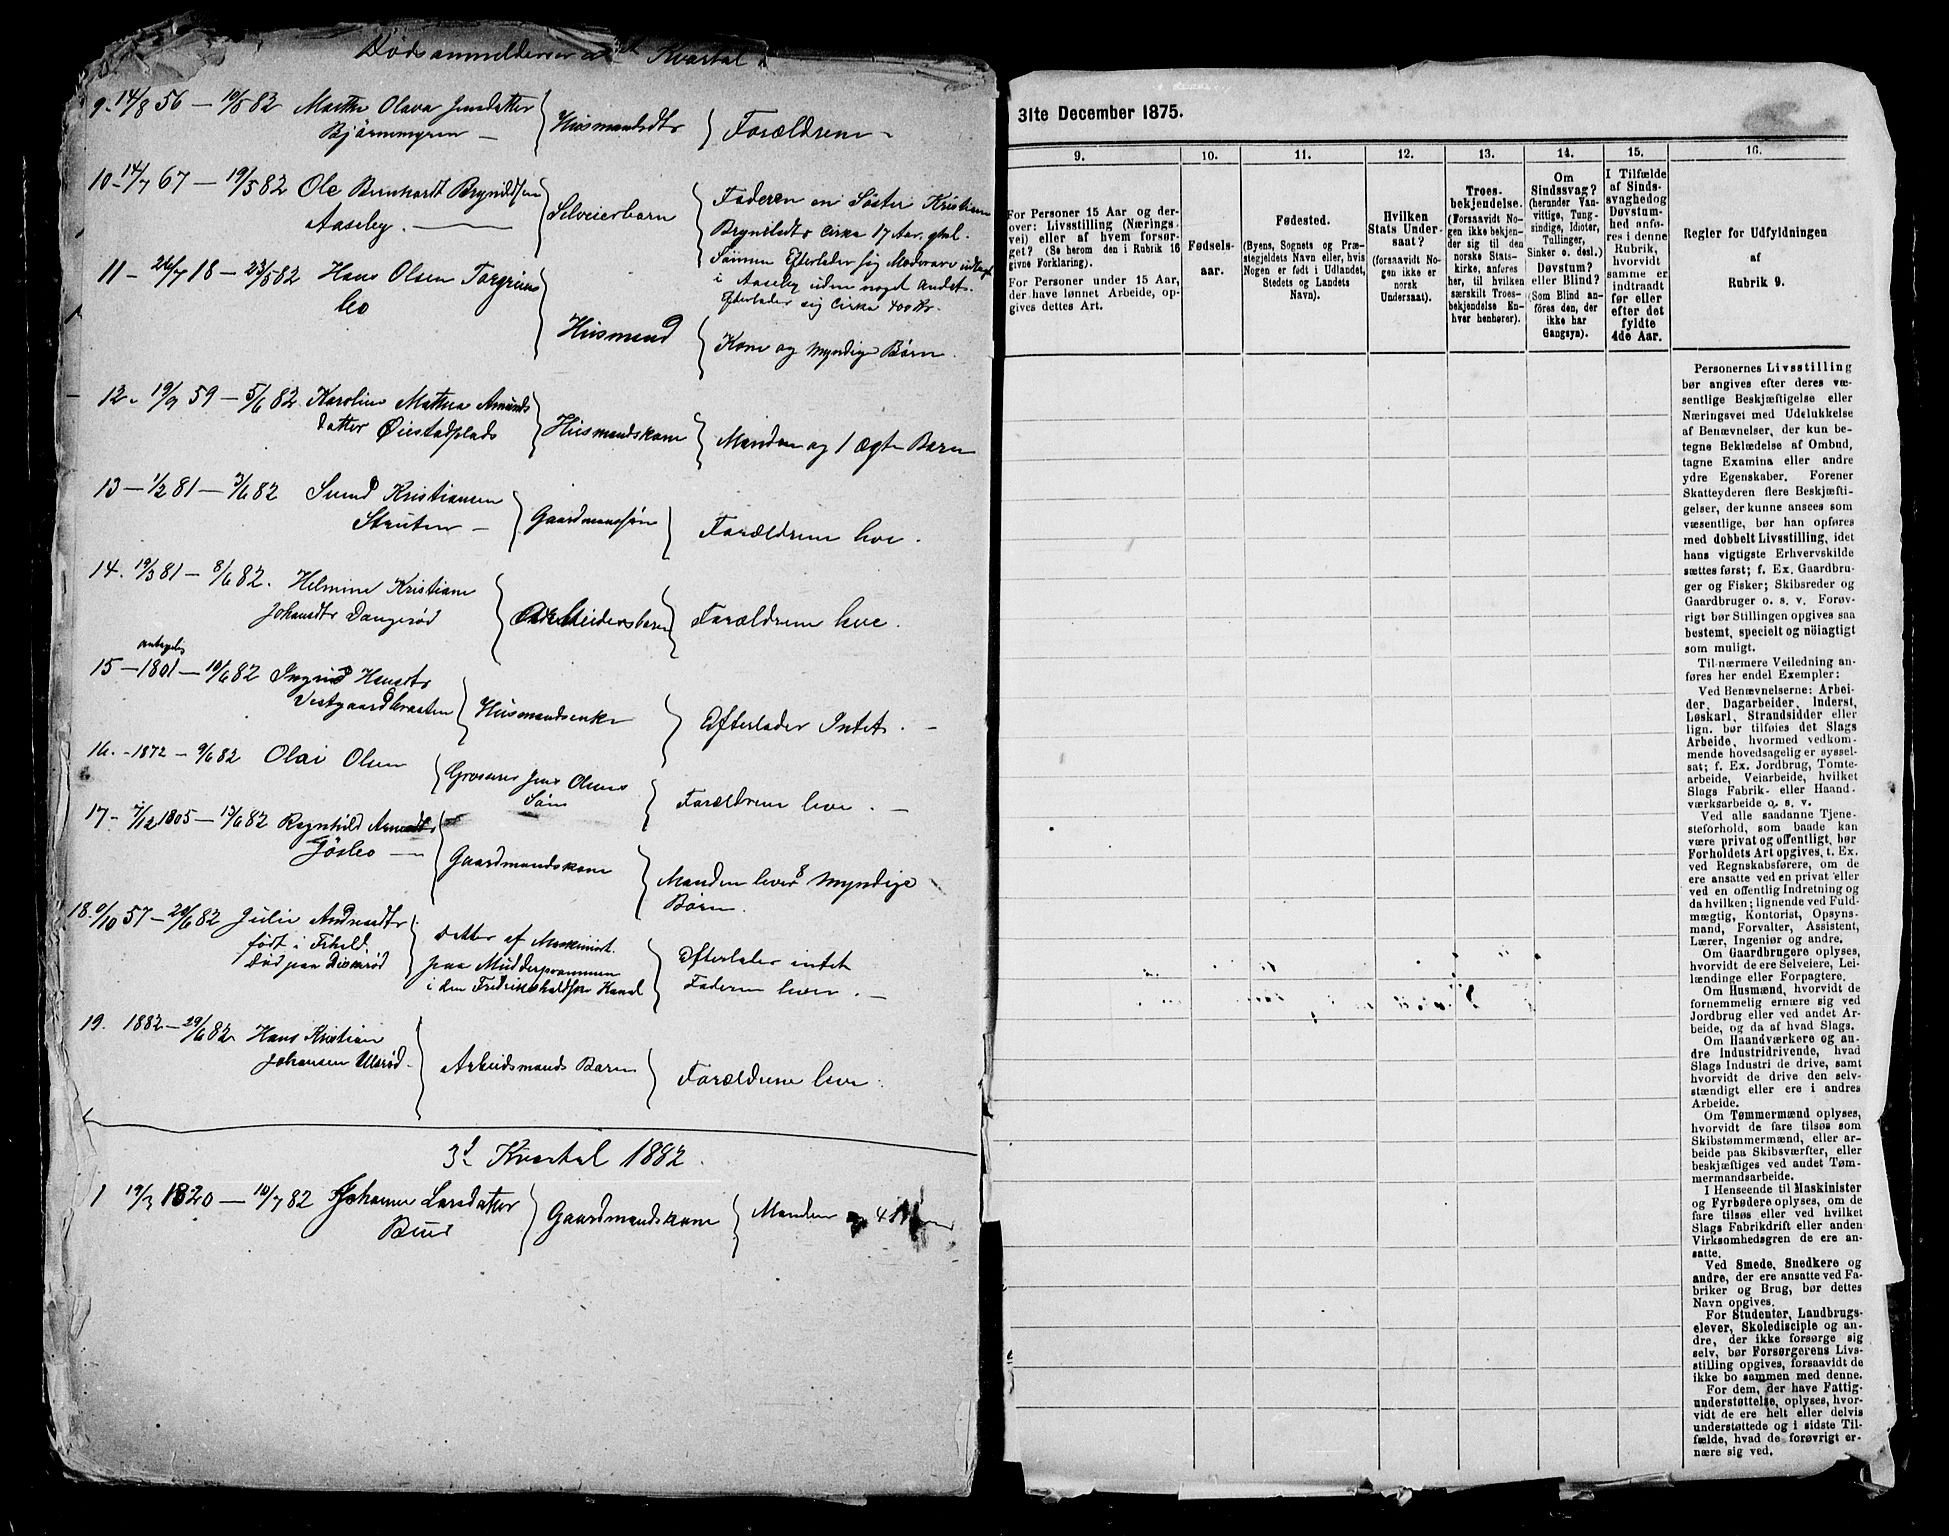 Dødsanmeldelser 2det Kvartal
9. 14/8 56 — 10/5 82 Marthe Olava Jensdatter
Bjørnemyren — Husmandsdtr Forældrene —
10 — 14/7 67 — 19/5 82 Ole Bernhardt Brynildsen
Aaseby. — Selveierbarn Faderen en Søster Kristiane
Brynildsdtr cirka 17 Aar. ghl.
Sønnen Efterlader sig Mødrearv
i Aaseby uden noget andet.
Efterlader sig cirka 400 Kr.
11 — 26/7 18 — 23/5 82 Hans Olsen Torgrims
leo Husmand Kone og myndige Børn.
12. 19/9 59 — 5/6 82. Karoline Mathea Amunds
datter Øiestadplads Husmandskone Manden og 1 ægte Barn
13 — 1/2 81 — 3/6 82 Svend Kristiansen
Struten — Gaardmandssøn Forældrene leve.
14. 19/3 81 — 8/6 82. Helmine Kristiane
Johansdtr Dangerød Arbeidersbarn Forældrene leve.
15 — 1801 — 10/6 82 Ingrid Hansdtr
Vestgaardbraaten Husmandsenke Efterlader Intet. —
16. — 1872 — 9/6 82 Olai Olsen Grosserer Jens Olsens
Søn Forældrene leve. —
17 — 7/12 1805 — 13/6 82 Regnhild
Jøsleo — Gaardmandskone Manden lever 8 myndige
Børn.
18. 9/10 57 — 20/6 82 Julie Andreasdtr
født i Frhald.
Død paa Diserød Datter af Maskinist
paa Mudderprammen
i den Fredrikshaldske Kanal Efterlader intet
Faderen lever. —
19. 1882 — 29/6 82. Hans Kristian
Johansen Ullerød. Arbeidsmands Barn Forældrene leve.
3d Kvartal 1882.
1 19/3 1820 — 10/7 82 Johanne Larsdatter
Buer Gaardmandskone Manden og 4 Børn
31te December 1875.
9.
For Personer 15 Aar og der-
over: Livsstilling (Nærings-
vei) eller af hvem forsør-
get? (Se herom den i Rubrik 16
givne Forklaring).
For Personer under 15 Aar,
der have lønnet Arbeide, op-
gives dettes Art.
10.
Fødsels-
aar.
11.
Fødested.
(Byens, Sognets og Præ-
stegjeldets Navn eller, hvis
Nogen er født i Udlandet,
Stedets og Landets
Navn).
12.
Hvilken
Stats Under-
saat?
(forsaavidt No-
gen ikke er
norsk
Undersaat).
13.
Troes-
bekjendelse.
(Forsaavidt No-
gen ikke bekjen-
der sig til den
norske Stats-
kirke, anføres
her, til hvilken
særskilt Troes-
bekjendelse En-
hver henhører).
14.
Om
Sindssvag?
(herunder Van-
vittige, Tung-
sindige, Idioter,
Tullinger,
Sinker o. desl.)
Døvstum?
eller Blind?
(Som Blind an-
föres den, der
ikke har
Gangsyn).
15.
I Tilfælde
af Sinds-
svaghedog
Døvstum-
hed anfø-
res i denne
Rubrik,
hvorvidt
samme er
indtraadt
før eller
efter det
fyldte
4de Aar.
16.
Regler for Udfyldningen
af
Rubrik 9.
Personernes Livsstilling
bør angives efter deres væ-
sentlige Beskjæftigelse eller
Næringsvei med Udelukkelse
af Benævnelser, der kun be-
tegne Beklædelse af Ombud,
tagne Examina eller andre
ydre Egenskaber. Forener
Skatteyderen flere Beskjæfti-
gelser, der kunne ansees som
væsentlige, bør han opføres
med dobbelt Livsstilling, idet
hans vigtigste Erhvervskilde
sættes først; f. Ex. Gaardbru-
ger og Fisker; Skibsreder og
Gaardbruger o. s. v. Forøv-
rigt bør Stillingen opgives saa
bestemt, specielt og nöiagtigt
som muligt.
Til nærmere Veiledning an-
føres her endel Exempler:
Ved Benævnelserne: Arbei-
der, Dagarbeider, Inderst,
Løskarl, Strandsidder eller
lign. bør tilføies det Slags
Arbeide, hvormed vedkom-
mende hovedsagelig er syssel-
sat; f. Ex. Jordbrug, Tomte-
arbeide, Veiarbeide, hvilket
Slags Fabrik- eller Haand-
værksarbeide o. s. v.
Ved alle saadanne Tjene-
steforhold, som baade kan
være privat og offentligt, bør
Forholdets Art opgives, t. Ex.
ved Regnskabsførere, om de
ere ansatte ved en privat eller
ved en offentlig Indretning og
da hvilken; lignende ved Fuld-
mægtig, Kontorist, Opsyns-
mand, Forvalter, Assistent,
Lærer, Ingeniør og andre.
Om Gaardbrugere oplyses,
hvorvidt de ere Selveiere, Lei-
lændinge eller Forpagtere.
Om Husmænd, hvorvidt de
fornemmelig ernære sig ved
Jordbrug eller ved andet Ar-
beide, og da af hvad Slags.
Om Haandværkere og an-
dre industridrivende, hvad
Slags Industri de drive, samt
hvorvidt de drive den selv-
stændigt eller ere i andres
Arbeide.
Om Tømmermænd oplyses,
hvorvidt de fare tilsøs som
Skibstømmermænd, eller ar-
beide paa Skibsværfter, eller
beskjæftiges ved andet Tøm-
mermandsarbeide.
I Henseende til Maskinister
og Fyrbødere oplyses, om de
fare tilsøs eller ved hvilket
Slags Fabrikdrift eller anden
Virksomhedsgren de ere an-
satte.
Ved Smede, Snedkere og
andre, der ere ansatte ved Fa-
briker og Brug, bør dettes
Navn opgives.
For Studenter, Landbrugs-
elever, Skoledisciple og an-
dre, der ikke forsørge sig
selv, bør Forsørgerens Livs-
stilling opgives, forsaavidt de
ikke bo sammen med denne.
For dem, der have Fattig-
understøttelse, oplyses, hvor-
vidt de ere helt eller delvis
understøttede og i sidste Til-
fælde, hvad de forøvrigt er-
nære sig ved.